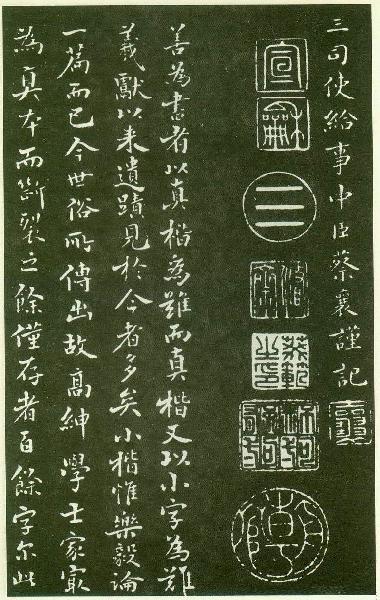 三司使給事中臣蔡襄謹記
宣龢
二
善為書者以真楷為難而真楷又以小字為難
羲獻以来遺蹟見於今者多矣小楷惟樂毅論
一篇而已今世俗所傳出故高紳學士家㝡
為真本而斷裂之餘僅存者百餘字尔此